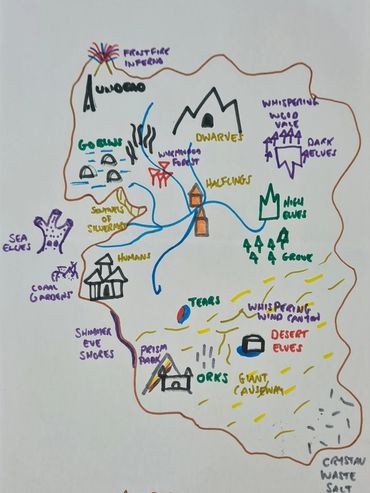 FROSTFIRE
INFERNO
UNDEAD
WHISPERING
WOOD
VALE
GOBLINS
DWARVES
DARK
ELVES
FOREST
HALFLINGS
SENTINELS
OF
SILVERMIST
HIGH
ELVES
SEA
ELVES
HUMANS
GROVE
CORAL
GARDENS
TEARS
WHISPERING
WIND CANYON
SHIMMER
EVE
SHORES
PRISM
PEAK
DESERT
ELVES
ORKS
GIANT
CAUSEWAY
CRYSTAL
WASTE
SALT